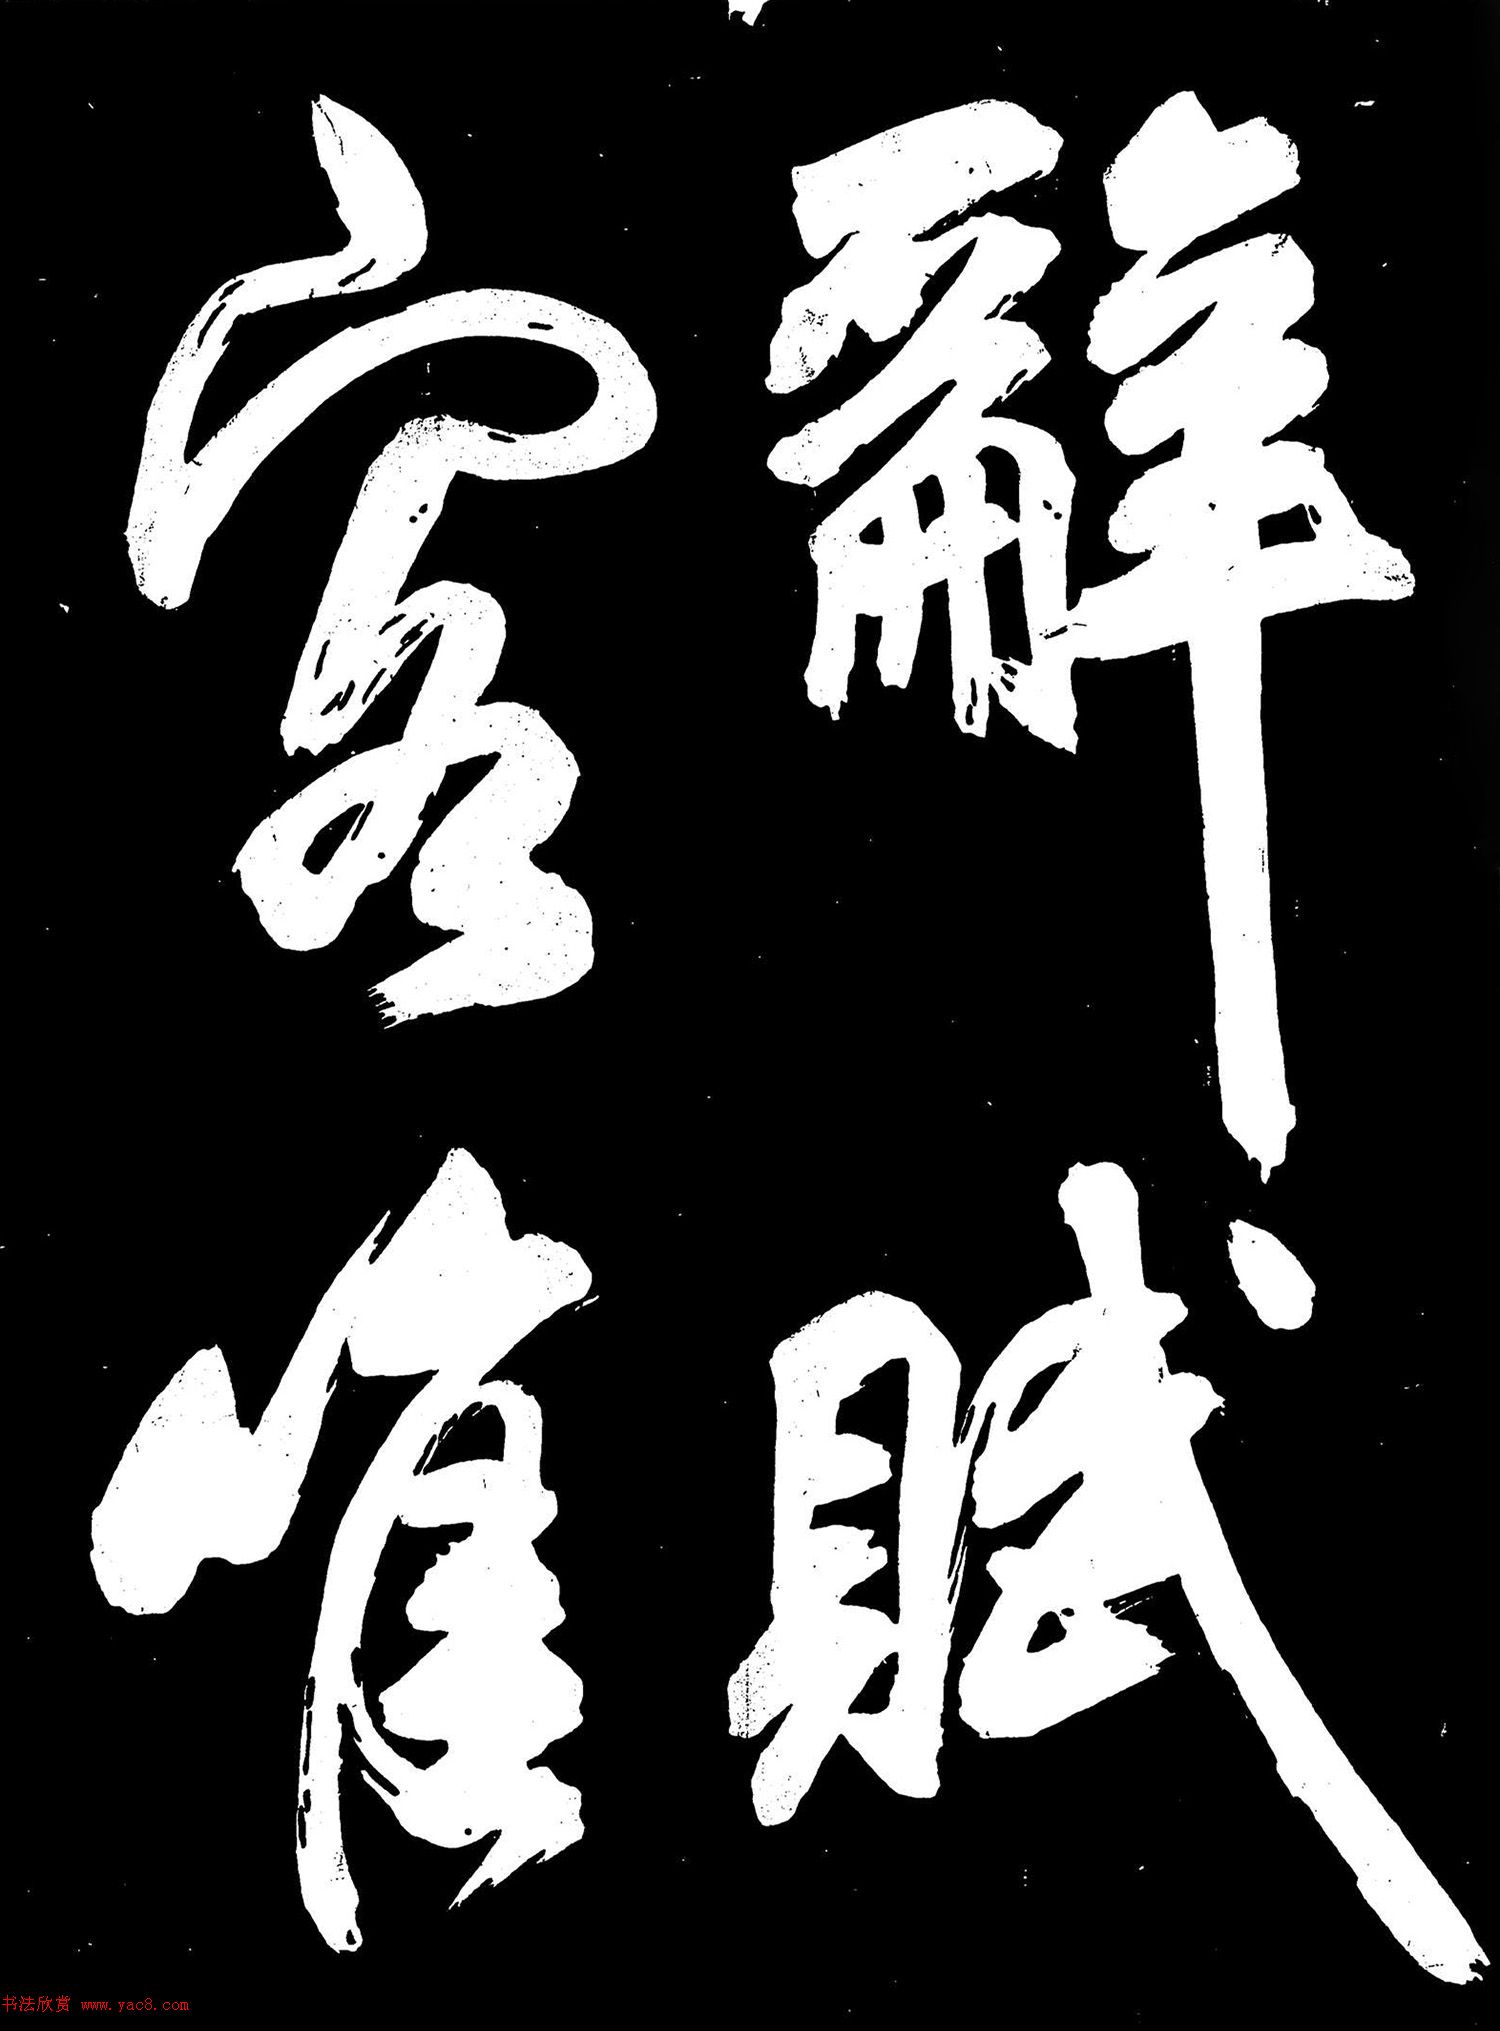 辭賦
客唯
书法欣赏 www.yac8.com